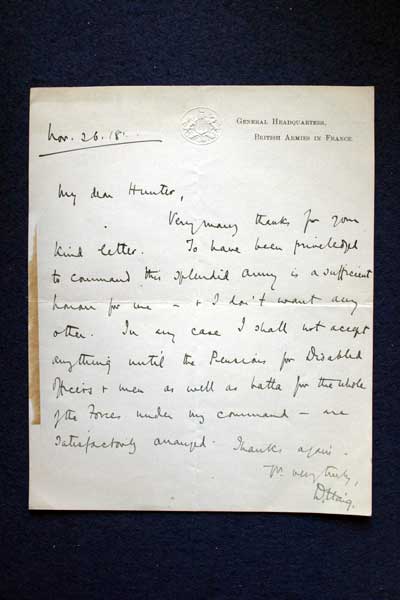 General Headquarters,
British Armies in France.
Nov. 26. 18.
My dear Hunter,
Very many thanks for your
kind letter. To have been priveledged
to command this splendid army is a sufficient
honour for me – & I don't want any
other. In any case I shall not accept
anything until the Pensions for Disabled
officers & men as well as batta for the whole
of the Forces under my command – are
satisfactorily arranged. Thanks again.
Yr. very truly,
D. Haig.